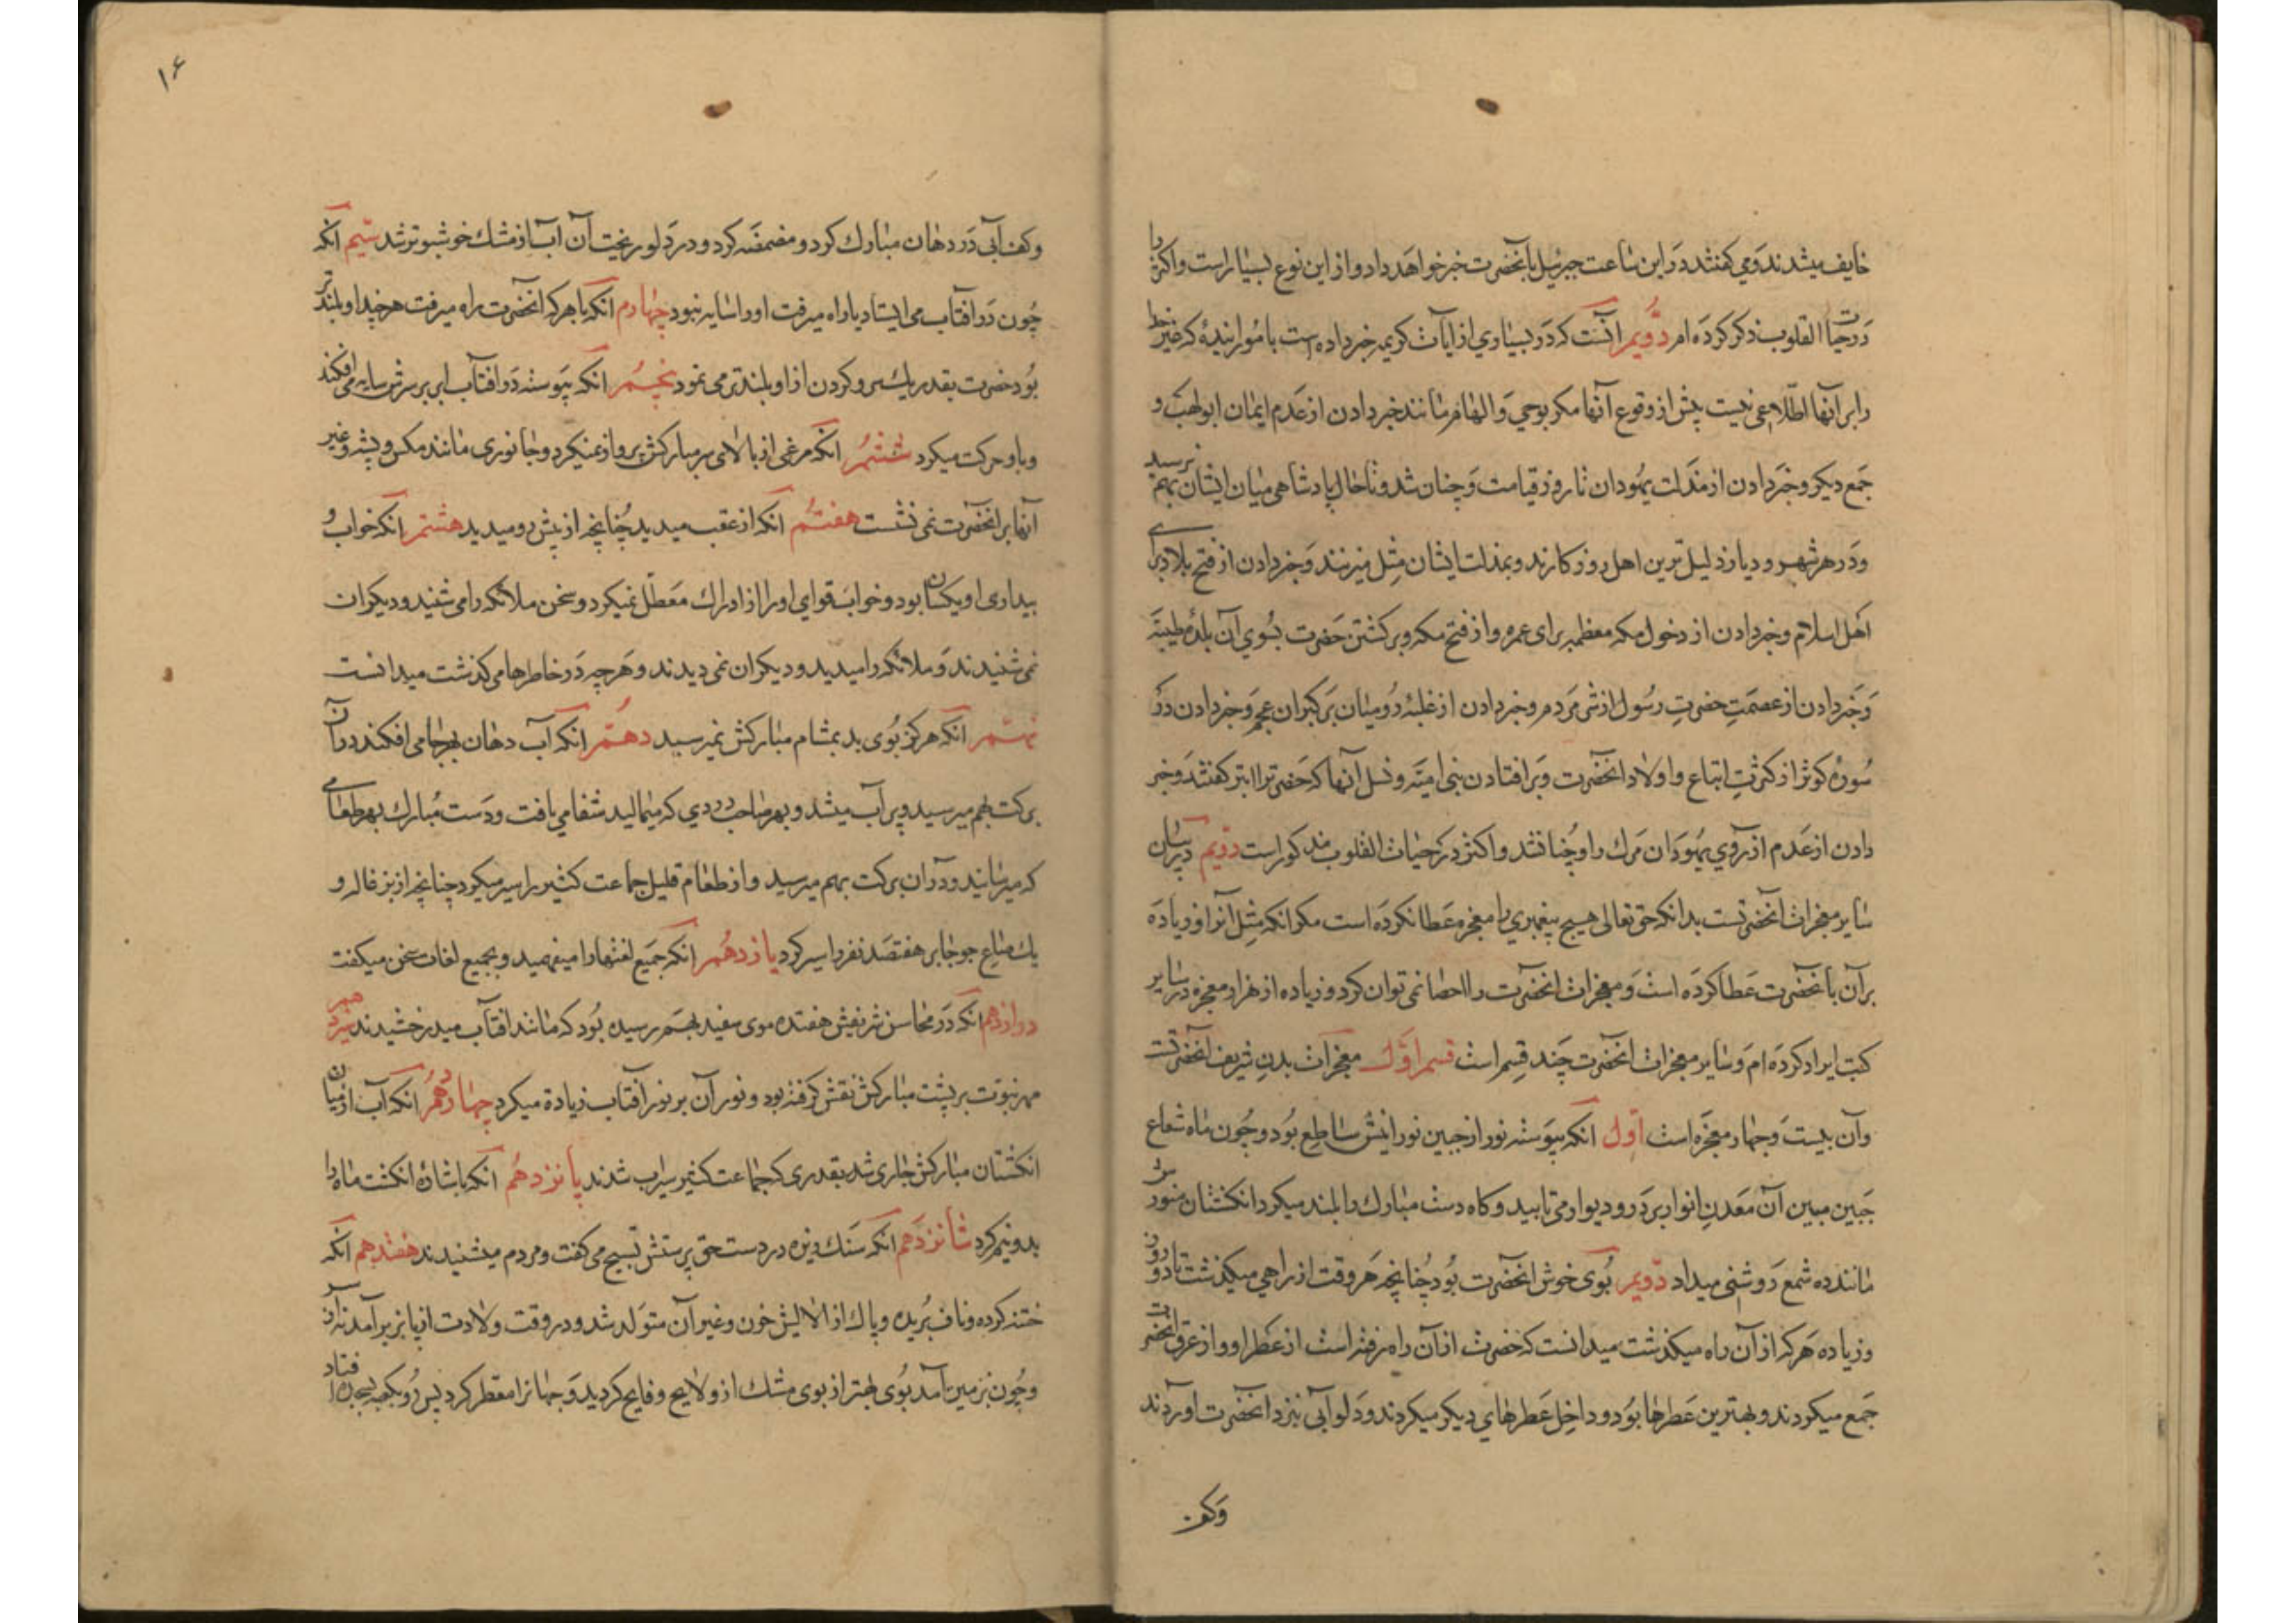 خایف میشدند و می گفتند در این ساعت جبرئیل بآنحضرت خبر خواهد داد و از این نوع بسیار است و اکثر را
در حیات القلوب ذکر کرده ام دویم آنست که در بسیاری از آیات کریمه خبر داده است بامور آینده که غیر خدا
را بر آنها اطلاعی نیست پیش از وقوع آنها مکر بوحی و الهام مانند خبر دادن از عدم ایمان ابولهب و
جمع دیکر و خبر دادن از مذلت یهودان تا روز قیامت و چنان شد و تا حال پادشاهی میان ایشان بهم نرسید
و در هر شهر و دیار ذلیل ترین اهل روزکارند و بمذلت ایشان مثل میزنند و خبر دادن از فتح بلاد برای
اهل اسلام و خبر دادن از دخول مکه معظمه برای عمره و از فتح مکه و برکشتن حضرت بسوی آن بلده طیبه
و خبر دادن از عصمت حضرت رسول از شر مردم و خبر دادن از غلبه رومیان بر کبران عجم و خبر دادن در
سوره کوثر از کثرت اتباع و اولاد آنحضرت و بر افتادن بنی امیه و نسل آنها که حضرترا ابتر کفتند و خبر
دادن از عدم آرزوی یهودان مرک را و چنان شد و اکثر در کتاب حیات القلوب مذکور است دویم در بیان
سایر معجزات آنحضرتست بدانکه حق تعالی هیچ پیغمبری را معجزه عطا نکرده است مکر انکه مثل آنرا و زیاده
بر آن بآنحضرت عطا کرده است و معجزات انحضرت را احصا نمی توان کرد و زیاده از هزار معجزه در سایر
کتب ایراد کرده ام و سایر معجزات انحضرت چند قسم است قسم اول معجزات بدن شریف آنحضرتست
و آن بیست و چهار معجزه است اول انکه پیوسته نور از جبین نورانیش ساطع بود و چون ماه شعاع
جبین مبین آن معدن انوار بر در و دیوار می تابید و کاه دست مبارک را بلند میکرد انکشتان منورش
ماننده شمع روشنی میداد دویم بوی خوش انحضرت بود چنانچه هر وقت از راهی میکذشت تا دو روز
و زیاده هر که از آن راه میکذشت میدانست که حضرت از آن راه رفته است از عطر او و از عرق انحضرت
جمع میکردند و بهترین عطرها بود و داخل عطرهای دیکر میکردند و دلو آبی نزد انحضرت آوردند
وکف
۱۶
وکف آبی در دهان مبارک کرد و مضمضه کرد و در دلو ریخت آن آب از مشک خوشبوتر شد سیم انکه
چون در افتاب می ایستاد یا راه میرفت او را سایه نبود چهارم انکه با هر که انحضرت راه میرفت هر چند او بلندتر
بود حضرت بقدر یک سر و کردن از او بلندتر می نمود پنجم انکه پیوسته در افتاب ابر بر سرش سایه می افکند
و با او حرکت میکرد ششم انکه مرغی از بالای سر مبارکش پرواز نمیکرد و جانوری مانند مکس و پشه و غیر
آنها بر انحضرت نمی نشست هفتم انکه از عقب میدید چنانچه از پیش رو میدید هشتم انکه خواب و
بیداری او یکسان بود و خواب قوای او را از ادراک معطل نمیکرد و سخن ملائکه را می شنید و دیکران
نمی شنیدند و ملائکه را میدید و دیکران نمی دیدند و هر چه در خاطرها می کذشت میدانست
نهم انکه هرکز بوی بد بمشام مبارکش نمیرسید دهم انکه آب دهان بهر جا می افکند در آن
برکت بهم میرسید و پر آب میشد و بهر صاحب دردی که میمالید شفا می یافت و دست مبارک بهر طعامی
که میرسانید در آن برکت بهم میرسید و از طعام قلیل جماعت کثیر را سیر میکرد چنانچه از بزغاله و
یک صاع جو جابر هفتصد نفر را سیر کرد یازدهم انکه جمیع لغتها را میفهمید و بجمیع لغات سخن میکفت
دوازدهم انکه در محاسن شریفش هفتده موی سفید بهم رسیده بود که مانند افتاب میدرخشیدند سیزدهم
مهر نبوت بر پشت مبارکش نقش کرفته بود و نور آن بر نور افتاب زیاده میکرد چهاردهم انکه آب از میان
انکشتان مبارکش جاری شد بقدری که جماعت کثیر سیراب شدند پانزدهم انکه باشاره انکشت ماه را
بدو نیم کرد شانزدهم انکه سنک ریزه در دست حق پرستش تسبیح می کفت و مردم میشنیدند هفتدهم انکه
ختنه کرده و ناف بریده و پاک از الایش خون و غیر آن متولد شد و در وقت ولادت از پا بزیر آمد نه از سر
و چون بزمین آمد بوی بهتر از بوی مشک از او لایح و فایح کردید و جهانرا معطر کرد پس رو بکعبه بسجده افتاد